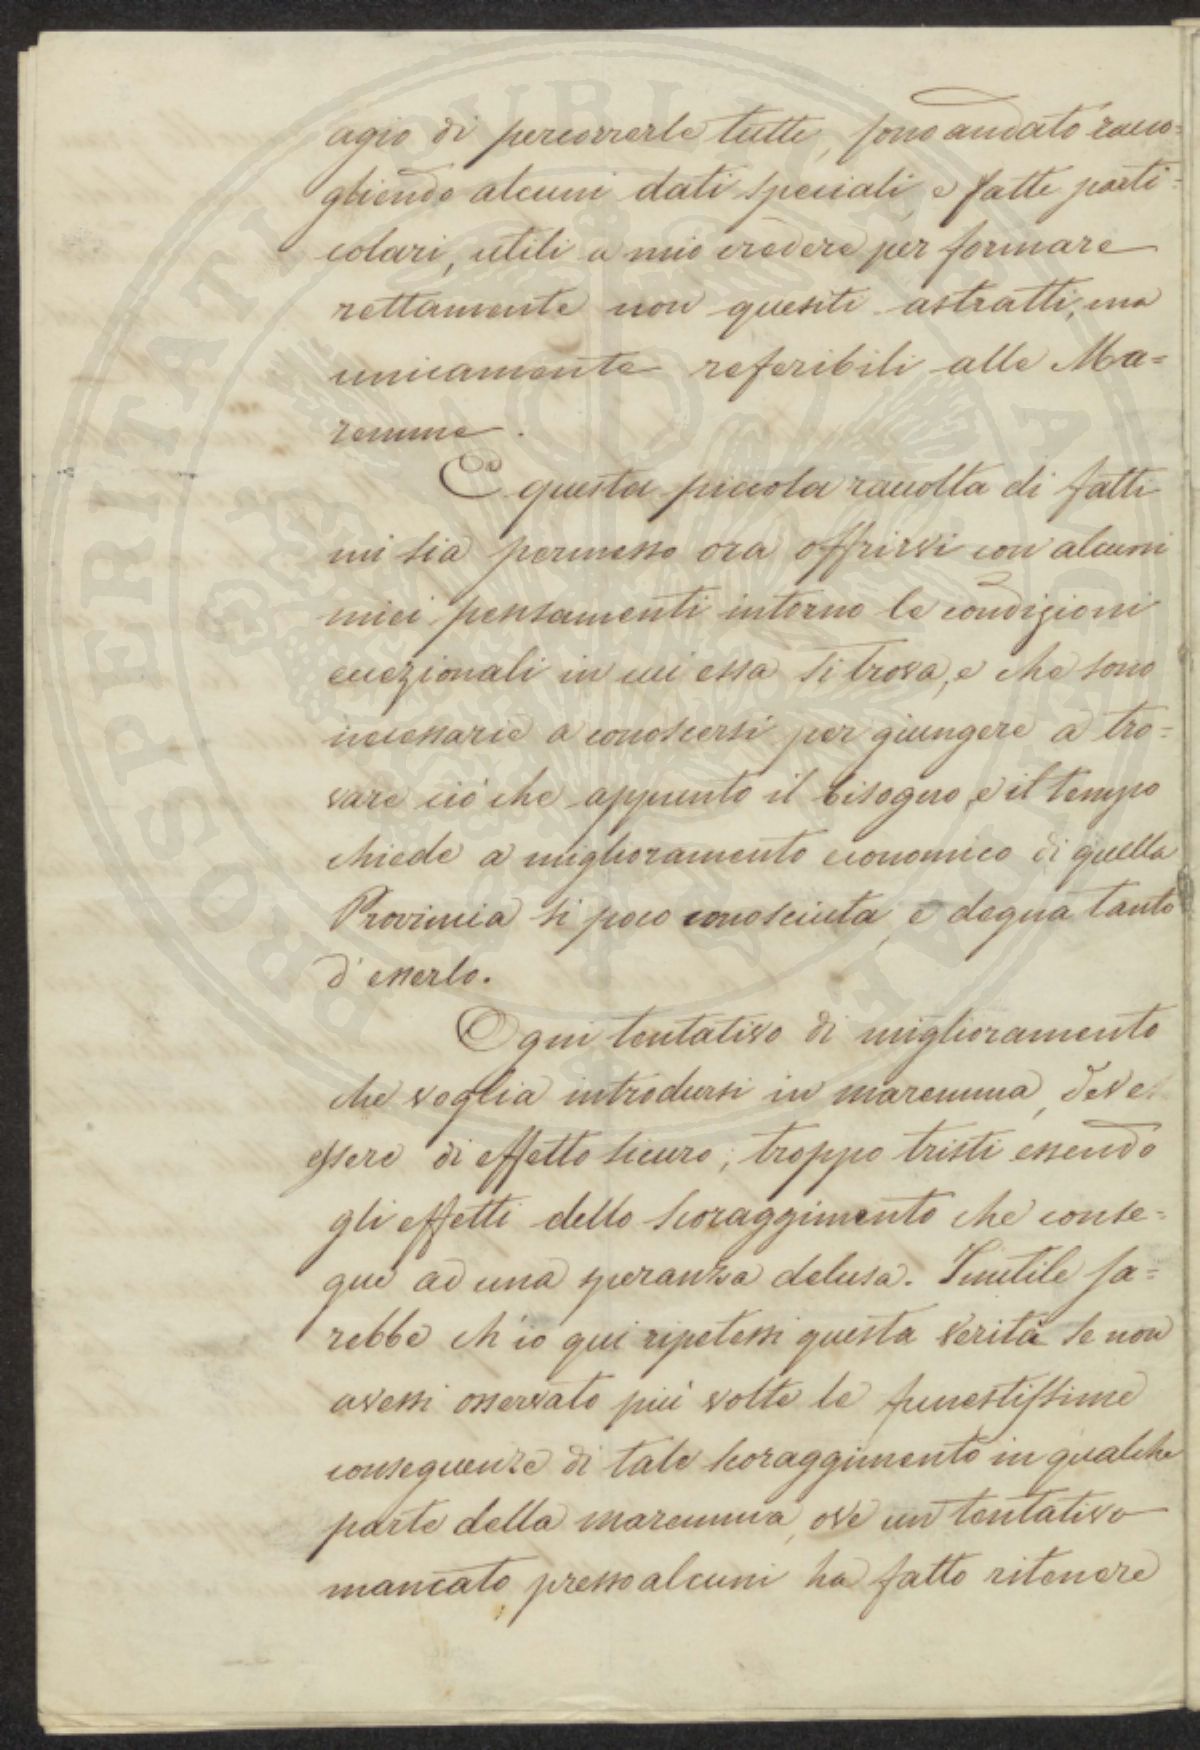 agio di percorrerle tutte, sono andato racco=
gliendo alcuni dati speciali, e fatte parti=
colari, utili a mio credere per formare
rettamente non quesiti astratti, ma
unicamente referibili alle Ma=
remme.
E questa piccola raccolta di fatti
mi sia permesso ora offrirvi con alcuni
miei pensamenti intorno le condizioni
eccezionali in cui essa si trova, e che sono
necessarie a conoscersi per giungere a tro=
vare ciò che appunto il bisogno, e il tempo
chiede a miglioramento economico di quella
Provincia sì poco conosciuta, e degna tanto
d'esserlo.
Ogni tentativo di miglioramento
che voglia introdursi in maremma, deve
essere di effetto sicuro; troppo tristi essendo
gli effetti dello scoraggimento che conse=
gue ad una speranza delusa. Inutile sa=
rebbe ch'io qui ripetessi questa verità se non
avessi osservato più volte le funestissime
conseguenze di tale scoraggimento in qualche
parte della maremma, ove un tentativo
mancato presso alcuni ha fatto ritenere
PROSPERITATI PUBLICAE AUGENDAE